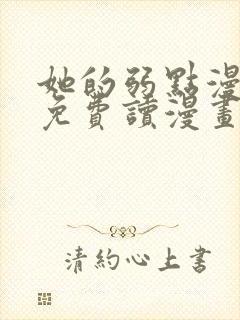 她的弱點漫
免費讀漫畫
清約心上書